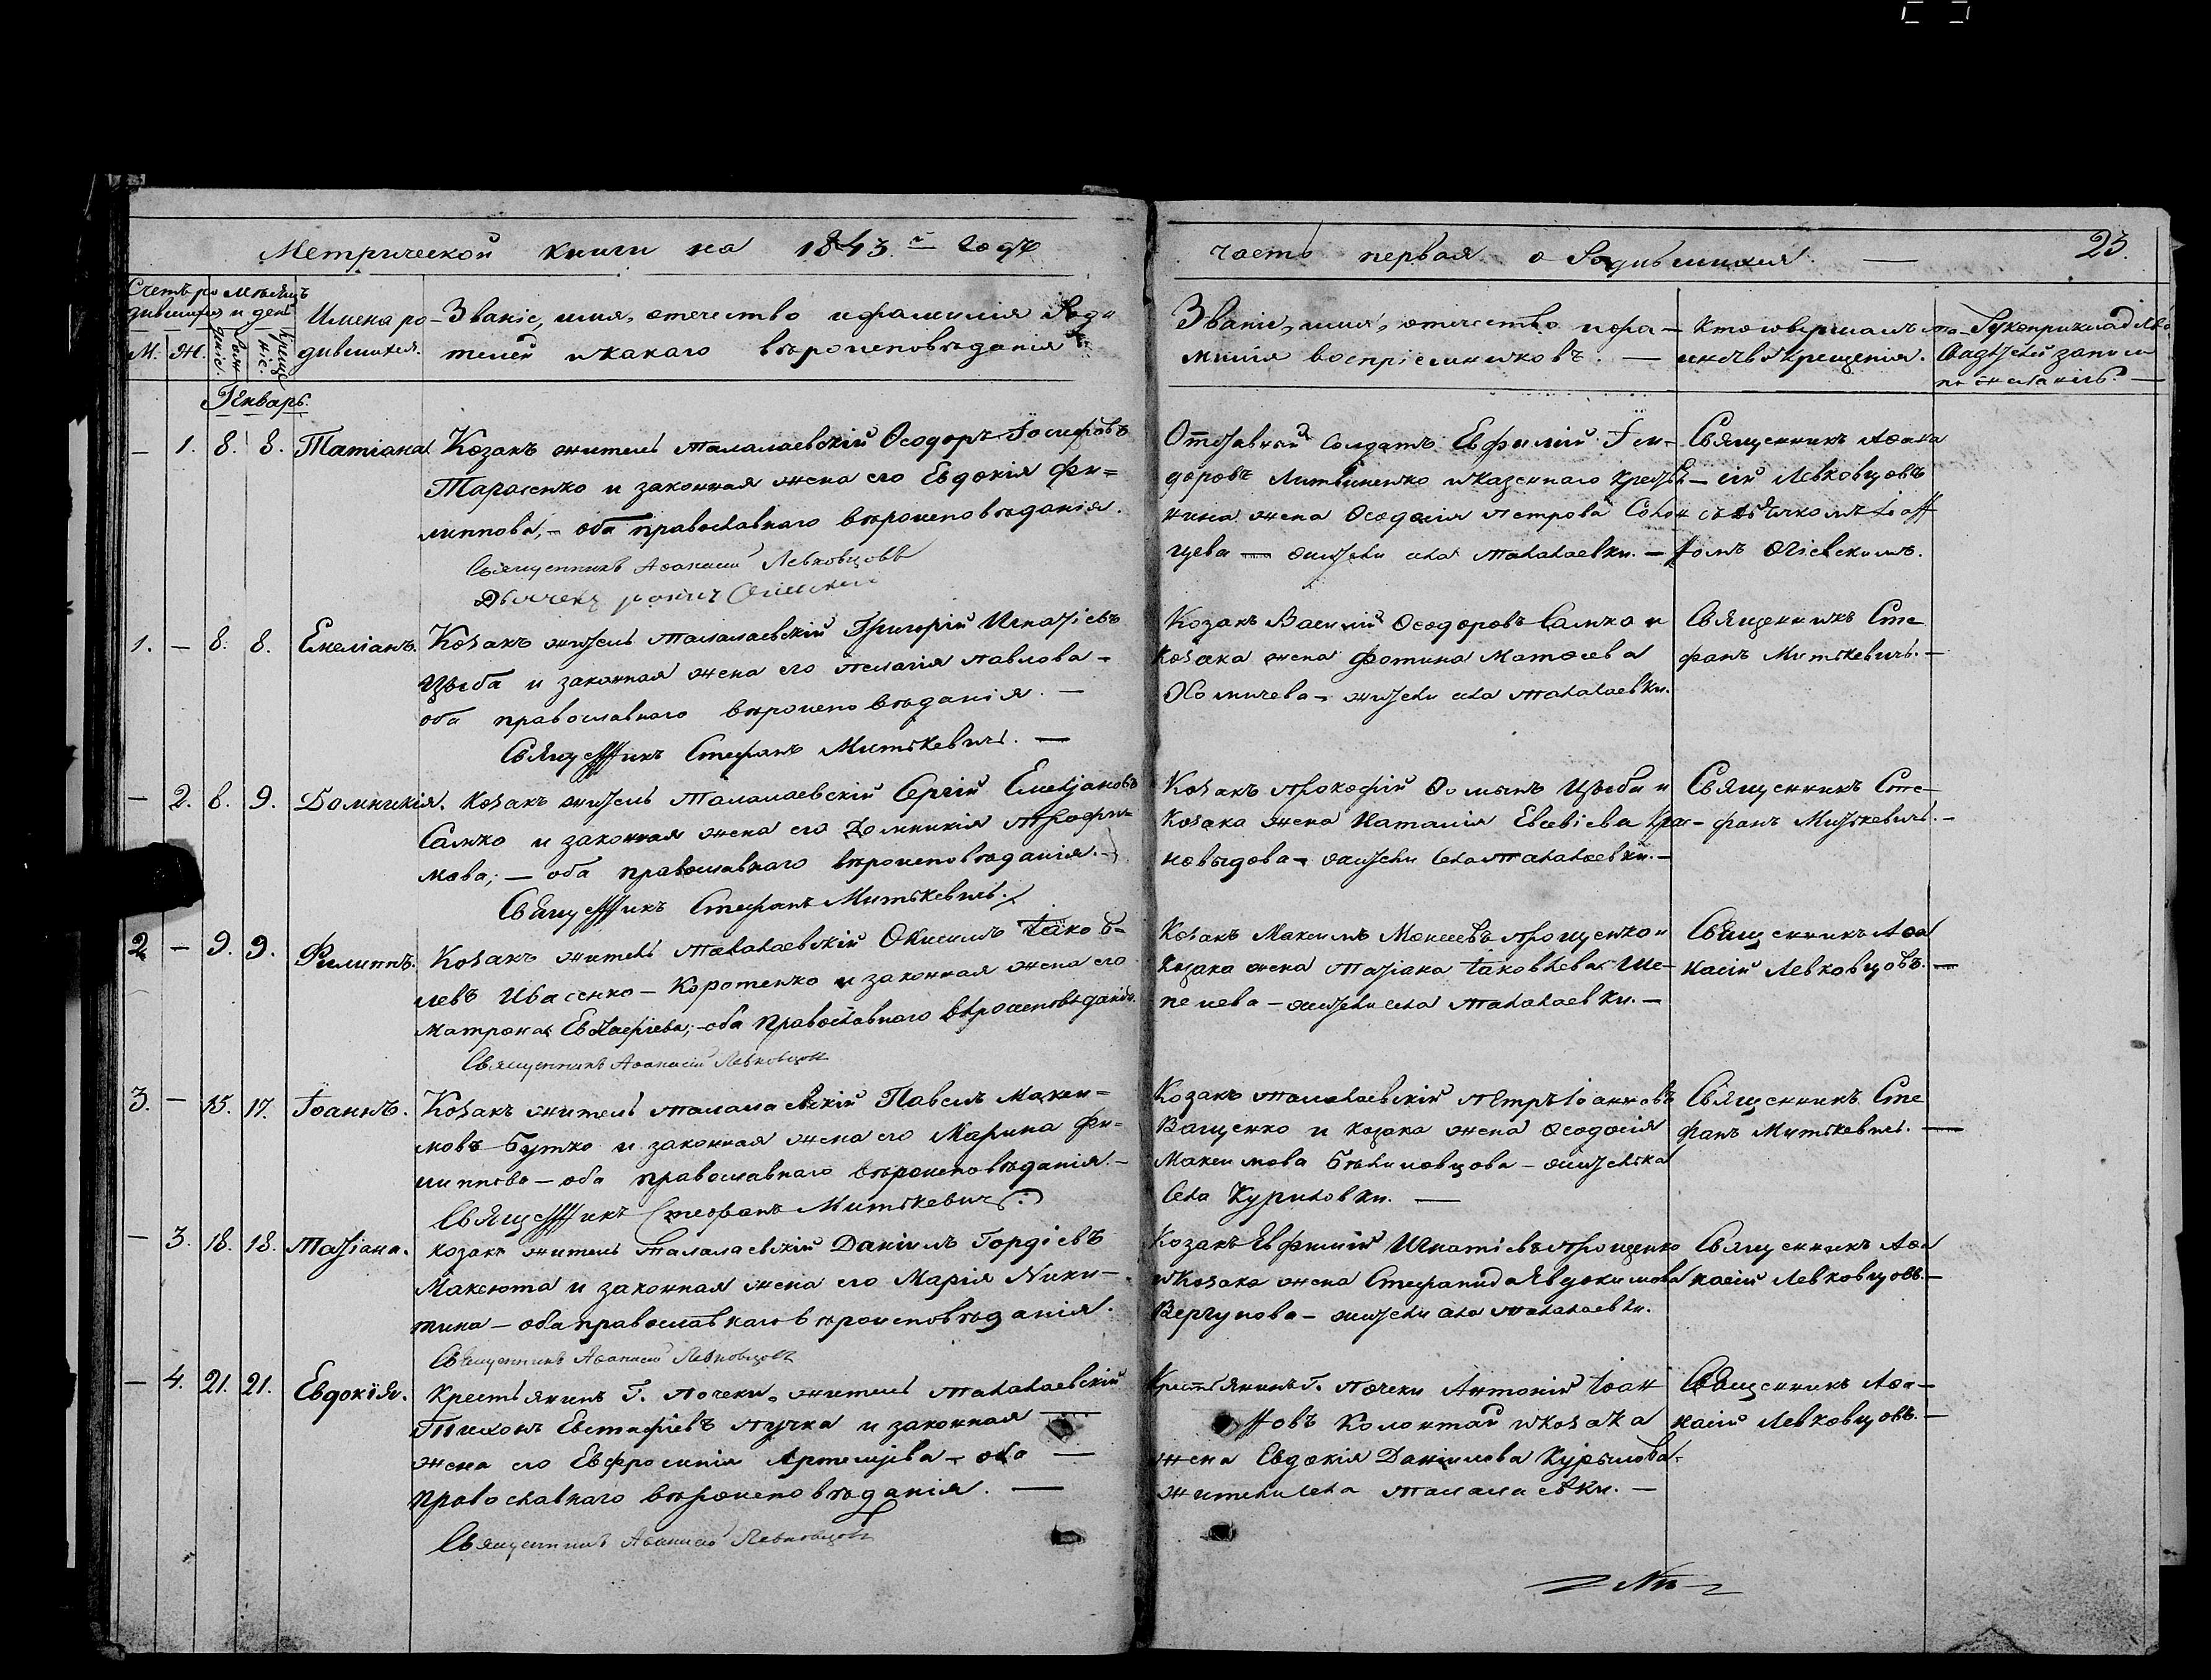 Метрической книги на 1843.й годъ
часть первая о Родившихся. — 23.
Счетъ ро
дившихся
Мѣсяцъ
и день
М. Ж.
рожденіе.
крещеніе.
Имена ро-
дившихся.
Званіе, имя, отечество и фамилія Роди
телей и какаго вѣроисповѣданія
Званіе, имя, отечество и фа-
милія воспріемниковъ. —
Кто совершалъ та-
инство Крещенія.
Рукоприкладство
свидѣтелей записи
по желанію. —
Генварь.
— 1. 8. 8. Татіана
Козакъ житель талалаевскій Ѳеодоръ Іосифовъ
Тарасенко и законная жена его Евдокія Фи=
липпова, — оба православнаго вѣроисповѣданія.
Священникъ Аѳанасій Левковцовъ
Отставный Солдатъ Евфимій Іси-
доровъ Литвиненко и казеннаго крестья
нина жена Ѳеодосія Петрова
жители села талалаевки. —
Священникъ Аѳана
сій Левковцовъ
1. — 8. 8. Емеліанъ.
Козакъ житель талалаевскій Григорій Игнатіевъ
Цыба и законная жена его пелагія павлова —
оба православнаго вѣроисповѣданія. —
Священникъ Стефанъ Митькевичъ. —
Козакъ Василій Ѳеодоровъ Салъко и
козака жена Фотина Матѳеева
жители села талалаевки.
Священникъ Сте
фанъ Митькевичъ. —
— 2. 8. 9. Домникія.
Козакъ житель талалаевскій Сергій Емельяновъ
Салъко и законная жена его Домникія Трофи=
мова; — оба православнаго вѣроисповѣданія. —
Священникъ Стефанъ Митькевичъ.
Козакъ прокофій Ѳоминъ Цыба и
козака жена Наталія Евсевіева Крас-
жители села талалаевки. —
Священникъ Сте-
фанъ Митькевичъ. —
2. — 9. 9. Филиппъ.
Козакъ житель талалаевскій Іаков-
левъ Ивасенко — Коротенко и законная жена его
Матрона Евстафіева; — оба православнаго вѣроисповѣданія.
Священникъ Аѳанасій Левковцовъ
Козакъ Максимъ Моисеевъ прощенко и
козака жена татіана Іаковлева Ше-
пелева — жители села талалаевки. —
Священникъ Аѳа
насій Левковцовъ. —
3. — 15. 17. Іоаннъ.
Козакъ житель талалаевскій Павелъ Макси-
мовъ Бутко и законная жена его Марина Фи-
липпова — оба православнаго вѣроисповѣданія. —
Священникъ Стефанъ Митькевичъ
Козакъ талалаевскій петръ Іоанновъ
Ващенко и козака жена Ѳеодосія
Максимова Бѣлиловцова — жителька
села Куриловки. —
Священникъ Сте
фанъ Митькевичъ. —
— 3. 18. 18. Татіана.
козакъ житель талалаевскій Даніилъ Гордіевъ
Максюта и законная жена его Марія Ники-
тина — оба православнаго вѣроисповѣданія.
Священникъ Аѳанасій Левковцовъ
Козакъ Евфимій Игнатіевъ прощенко
и козака жена Стефанида Явдокимова
Вергунова — жители села талалаевки.
Священникъ Аѳа
насій Левковцовъ. —
— 4. 21. 21. Евдокія.
Крестьянинъ Г. почеки, житель талалаевскій
Тихонъ Евстафіевъ пучка и законная —
жена его Евфросинія Артеміева — оба —
православнаго вѣроисповѣданія. —
Священникъ Аѳанасій Левковцовъ
Крестьянинъ Г. почеки Антоній Іоан
новъ Колонтай и козака
жена Евдокія Даніилова Курилова
жители села талалаевки. —
Священникъ Аѳа-
насій Левковцовъ. —